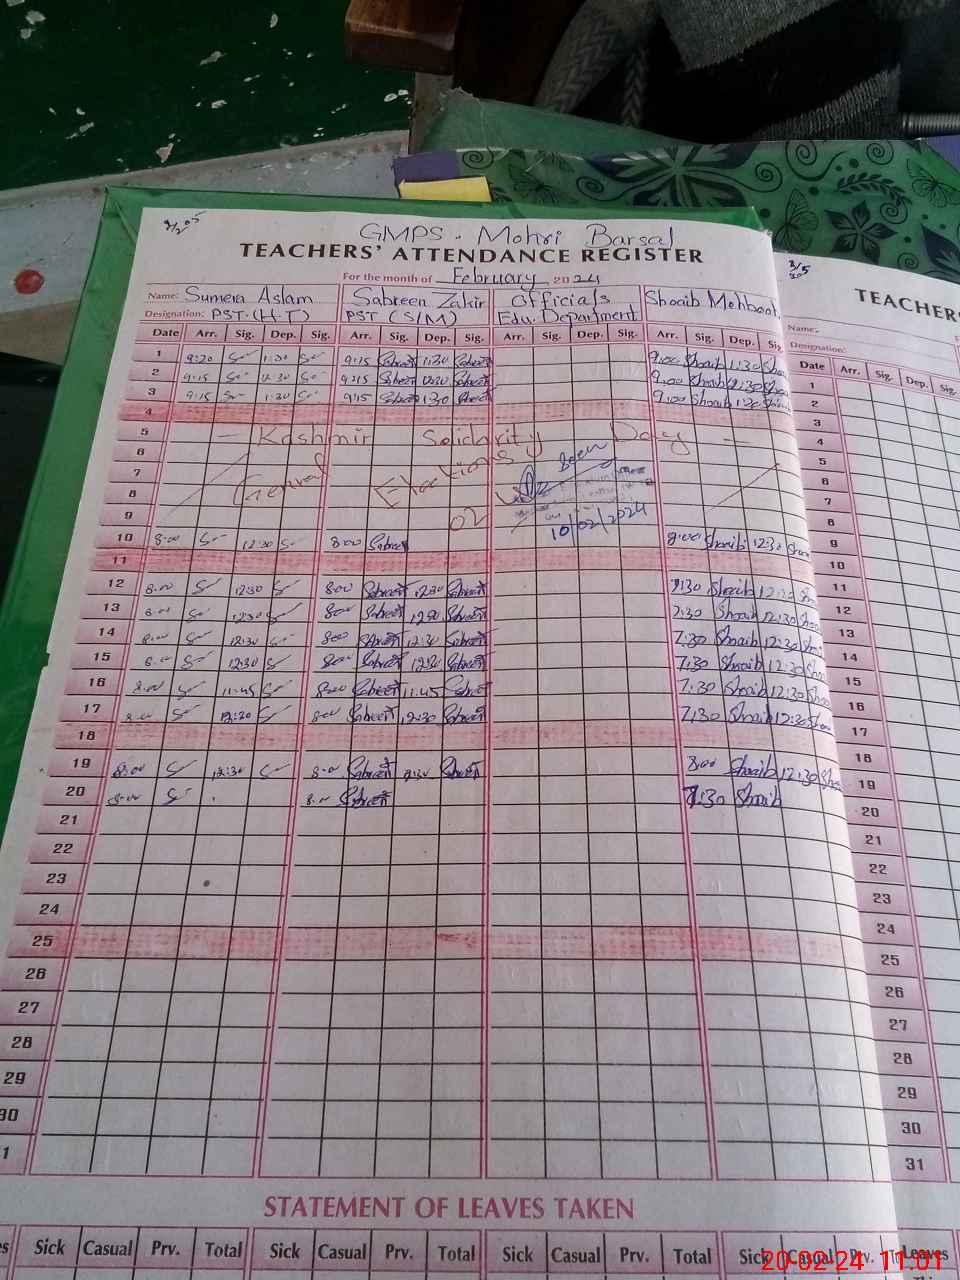 GMPS. Mohri Barsal
TEACHERS' ATTENDANCE REGISTER
For the month of February 2024
Name: Sumera Aslam Sabreen Zakir Officials Shoaib Mehboob
Designation: PST.(H.T) PST (S/M) Edu. Department
Date Arr. Sig. Dep. Sig. Arr. Sig. Dep. Sig. Arr. Sig. Dep. Sig. Arr. Sig. Dep. Sig.
1 9:20 1:30 9:15 Sabreen 1:30 Sabreen 9:00 Shoaib 1:30
2 9:15 12:30 9:15 Sabreen 12:30 Sabreen 9:00 Shoaib 12:30
3 9:15 1:30 9:15 Sabreen 1:30 Sabreen 9:00 Shoaib 1:30
4
5 - Kashmir Solidarity Day -
6
7 General Elections Seen
8
9 02 10/02/2024
10 8:00 12:30 8:00 Sabreen 8:00 Shoaib 12:30
11
12 8:00 12:30 8:00 Sabreen 12:30 Sabreen 7:30 Shoaib 12:30
13 8:00 12:30 8:00 Sabreen 12:30 Sabreen 7:30 Shoaib 12:30
14 8:00 12:30 8:00 Sabreen 12:30 Sabreen 7:30 Shoaib 12:30
15 8:00 12:30 8:00 Sabreen 12:30 Sabreen 7:30 Shoaib 12:30
16 8:00 11:45 8:00 Sabreen 11:45 Sabreen 7:30 Shoaib 12:30
17 8:00 12:30 8:00 Sabreen 12:30 Sabreen 7:30 Shoaib 12:30
18
19 8:00 12:30 8:00 Sabreen 12:30 Sabreen 8:00 Shoaib 12:30
20 8:00 8:00 Sabreen 7:30 Shoaib
21
22
23
24
25
26
27
28
29
30
1
STATEMENT OF LEAVES TAKEN
Sick Casual Prv. Total Sick Casual Prv. Total Sick Casual Prv. Total Sick Casual Prv.
TEACHERS
Name:
Designation:
Date Arr. Sig. Dep. Sig.
1
2
3
4
5
6
7
8
9
10
11
12
13
14
15
16
17
18
19
20
21
22
23
24
25
26
27
28
29
30
31
Leaves
20-02-24 11:01